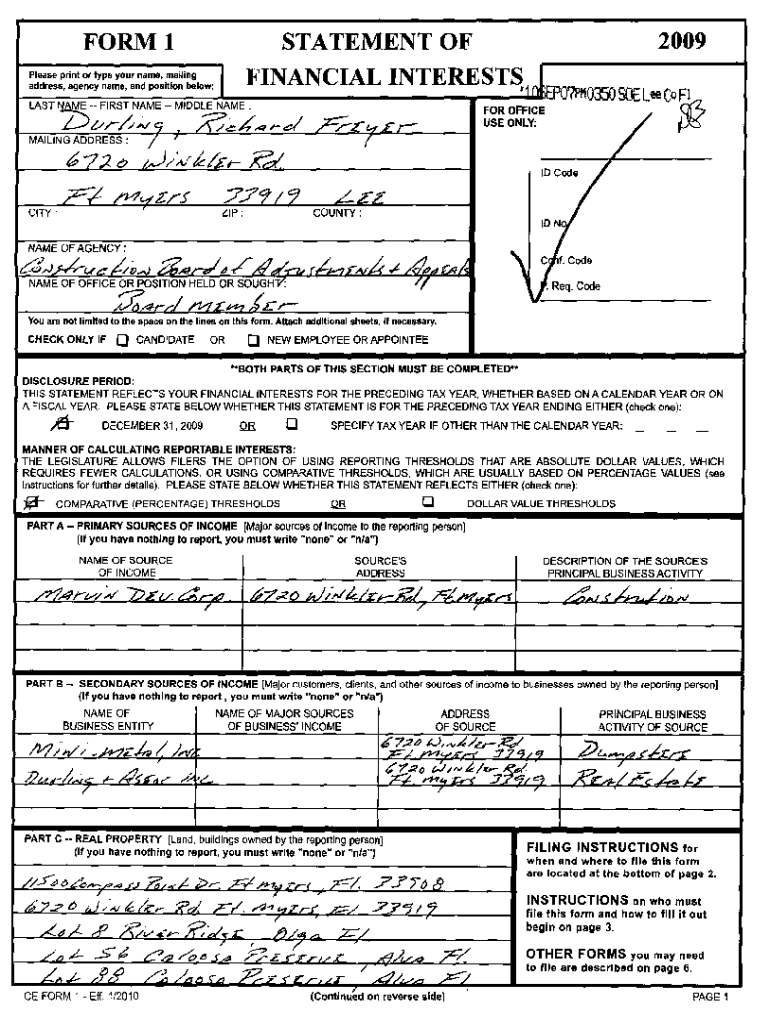 FORM 1
STATEMENT OF
2009
Please print or type your name, mailing
address, agency name, and position below:
FINANCIAL INTERESTS
LAST NAME -- FIRST NAME -- MIDDLE NAME :
Durling, Richard Freyer
MAILING ADDRESS :
6720 Winkler Rd.
Ft Myers 33919 LEE
CITY : ZIP : COUNTY :
NAME OF AGENCY :
Construction Board of Adjustments + Appeals
NAME OF OFFICE OR POSITION HELD OR SOUGHT :
Board member
You are not limited to the space on the lines on this form. Attach additional sheets, if necessary.
CHECK ONLY IF CANDIDATE OR NEW EMPLOYEE OR APPOINTEE
'10SEP07PM0350 SOE Lee Co Fl
FOR OFFICE
USE ONLY:
ID Code
ID No.
Conf. Code
P. Req. Code
**BOTH PARTS OF THIS SECTION MUST BE COMPLETED**
DISCLOSURE PERIOD:
THIS STATEMENT REFLECTS YOUR FINANCIAL INTERESTS FOR THE PRECEDING TAX YEAR, WHETHER BASED ON A CALENDAR YEAR OR ON
A FISCAL YEAR. PLEASE STATE BELOW WHETHER THIS STATEMENT IS FOR THE PRECEDING TAX YEAR ENDING EITHER (check one):
DECEMBER 31, 2009 OR SPECIFY TAX YEAR IF OTHER THAN THE CALENDAR YEAR:
MANNER OF CALCULATING REPORTABLE INTERESTS:
THE LEGISLATURE ALLOWS FILERS THE OPTION OF USING REPORTING THRESHOLDS THAT ARE ABSOLUTE DOLLAR VALUES, WHICH
REQUIRES FEWER CALCULATIONS, OR USING COMPARATIVE THRESHOLDS, WHICH ARE USUALLY BASED ON PERCENTAGE VALUES (see
instructions for further details). PLEASE STATE BELOW WHETHER THIS STATEMENT REFLECTS EITHER (check one):
COMPARATIVE (PERCENTAGE) THRESHOLDS OR DOLLAR VALUE THRESHOLDS
PART A -- PRIMARY SOURCES OF INCOME [Major sources of income to the reporting person]
(If you have nothing to report, you must write "none" or "n/a")
NAME OF SOURCE
OF INCOME
SOURCE'S
ADDRESS
DESCRIPTION OF THE SOURCE'S
PRINCIPAL BUSINESS ACTIVITY
Marvin Dev. Corp. 6720 Winkler Rd, Ft. Myers Constrution
PART B -- SECONDARY SOURCES OF INCOME [Major customers, clients, and other sources of income to businesses owned by the reporting person]
(If you have nothing to report , you must write "none" or "n/a")
NAME OF
BUSINESS ENTITY
NAME OF MAJOR SOURCES
OF BUSINESS' INCOME
ADDRESS
OF SOURCE
PRINCIPAL BUSINESS
ACTIVITY OF SOURCE
Mini-Metal, Inc 6720 Winkler Rd Ft Myers 33919 Dumpsters
Durling + Assoc Inc 6720 Winkler Rd. Ft. Myers 33919 Real Estate
PART C -- REAL PROPERTY [Land, buildings owned by the reporting person]
(If you have nothing to report, you must write "none" or "n/a")
11500 Compass Point Dr. Ft Myers, Fl. 33908
6720 Winkler Rd. Ft. Myers, Fl 33919
Lot 8 River Ridge Olga Fl
Lot 56 Caloosa Preserve, Alva Fl.
Lot 88 Caloosa Preserve, Alva Fl
FILING INSTRUCTIONS for
when and where to file this form
are located at the bottom of page 2.
INSTRUCTIONS on who must
file this form and how to fill it out
begin on page 3.
OTHER FORMS you may need
to file are described on page 6.
CE FORM 1 - Eff. 1/2010
(Continued on reverse side)
PAGE 1